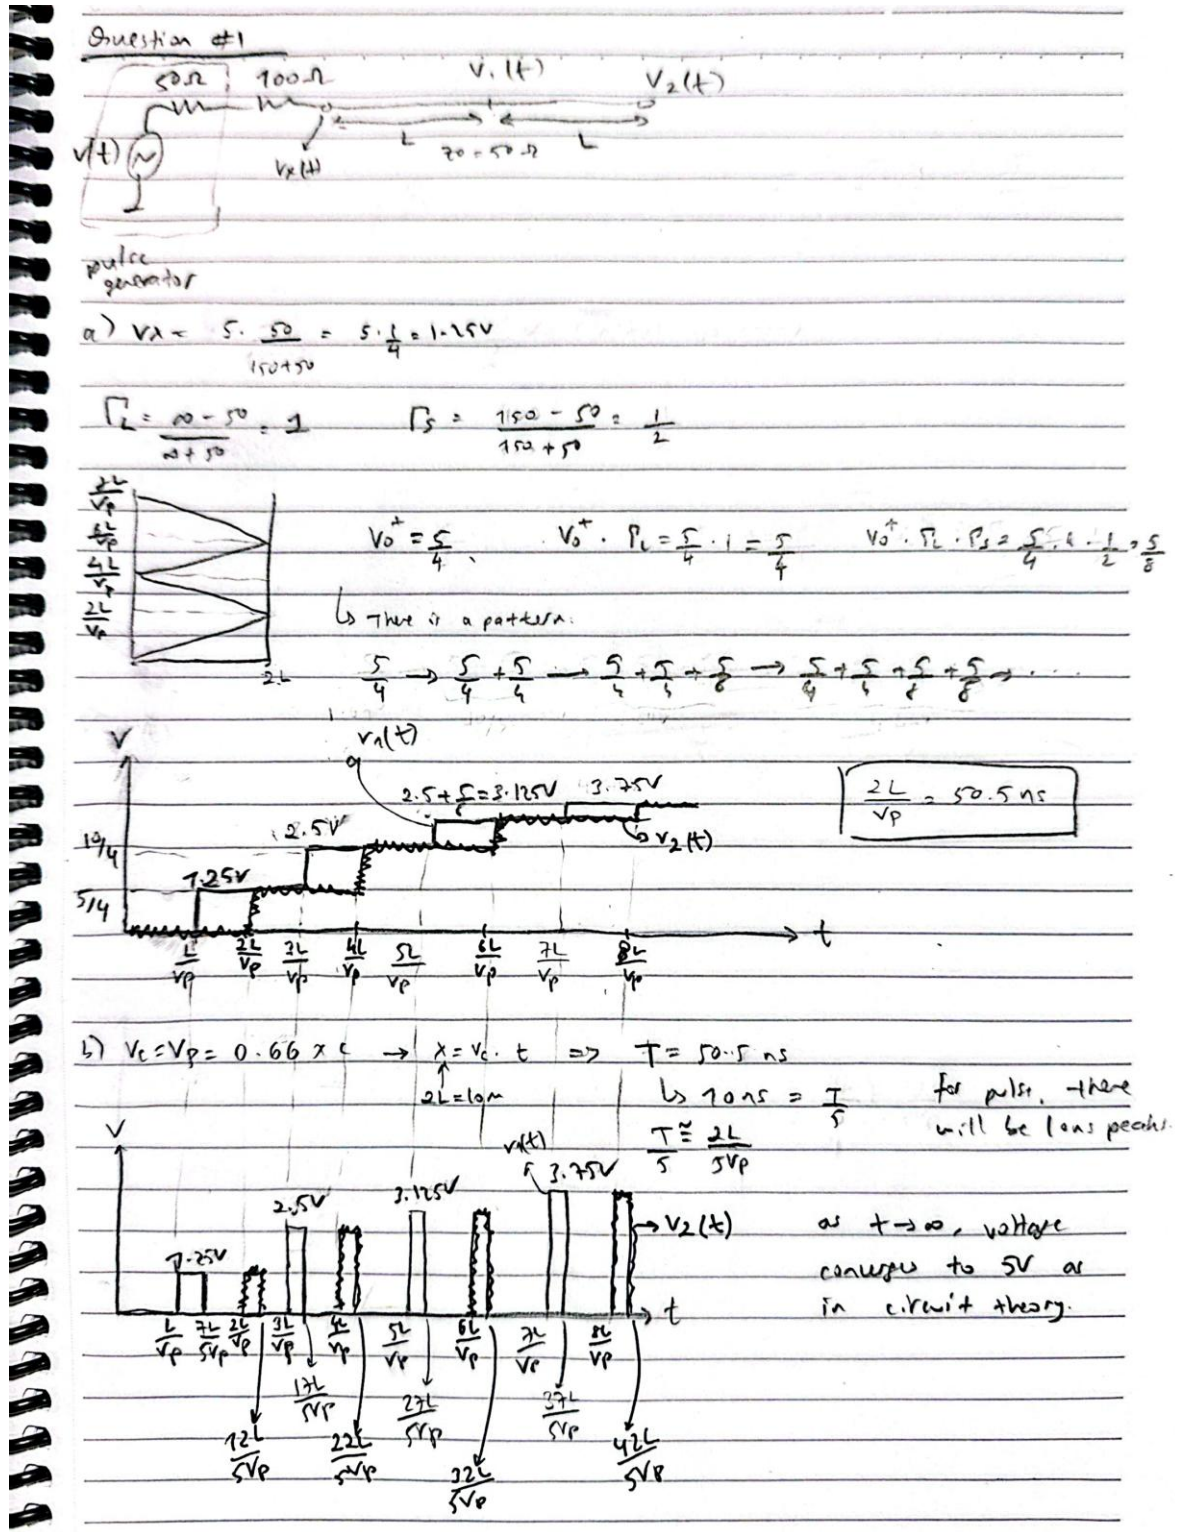 Question #1
50Ω 100Ω V₁(t) V₂(t)
v(t) L L
Vx(t) Z0 = 50Ω
pulse
generator
a) Vx = 5 · 50/(150+50) = 5 · 1/4 = 1.25V
Γ_L = (∞ - 50)/(∞ + 50) = 1 Γs = (150 - 50)/(150 + 50) = 1/2
4L/Vp
2L/Vp
2L
V₀⁺ = 5/4 V₀⁺ · Γ_L = 5/4 · 1 = 5/4 V₀⁺ · Γ_L · Γs = 5/4 · 1 · 1/2 = 5/8
↳ There is a pattern.
5/4 → 5/4 + 5/4 → 5/4 + 5/4 + 5/8 → 5/4 + 5/4 + 5/8 + 5/8 → ...
V v₁(t)
2.5 + 5/8 = 3.125V 3.75V
2L/Vp = 50.5 ns
10/4 2.5V v₂(t)
5/4 1.25V
t
L/Vp 2L/Vp 3L/Vp 4L/Vp 5L/Vp 6L/Vp 7L/Vp 8L/Vp
b) Vc = Vp = 0.66 x c → x = Vc · t => T = 50.5 ns
2L = 10m
↳ 10ns = T/5 for pulse, there
will be 10ns peaks.
T/5 ≅ 2L/5Vp
V v₁(t)
1.25V 2.5V 3.125V 3.75V
→ V2(t)
as t→∞, voltage
converges to 5V as
in circuit theory.
t
L/Vp 7L/5Vp 2L/Vp 3L/Vp 4L/Vp 5L/Vp 6L/Vp 7L/Vp 8L/Vp
17L/5Vp 27L/5Vp 37L/5Vp
12L/5Vp 22L/5Vp 32L/5Vp 42L/5Vp